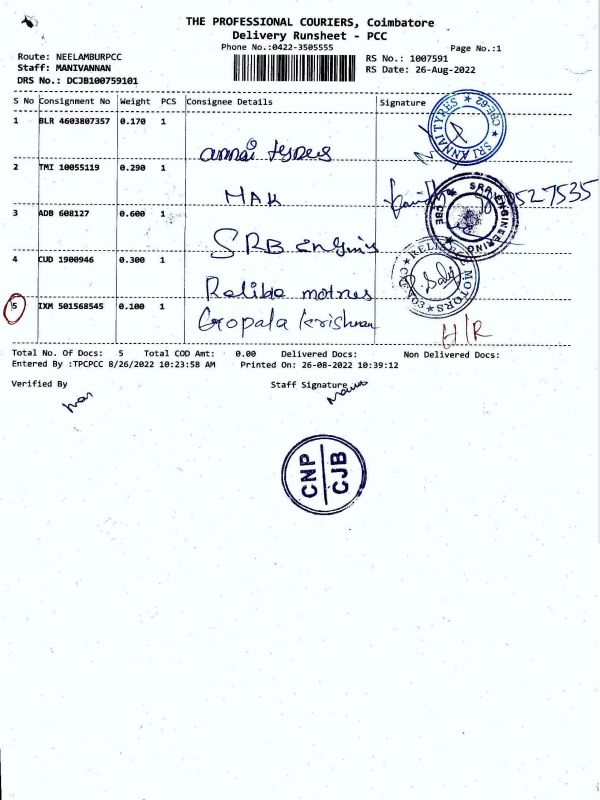 THE PROFESSIONAL COURIERS, Coimbatore
Delivery Runsheet - PCC
Phone No.:0422-3505555
Page No.:1
Route: NEELAMBURPCC
RS No.: 1007591
Staff: MANIVANNAN
RS Date: 26-Aug-2022
DRS No.: DCJB100759101
S No Consignment No Weight PCS Consignee Details Signature
1 BLR 4603807357 0.170 1
annai tyres
SRI ANNAI TYRES ★ CBE-62 ★
2 TMI 10055119 0.290 1
MAK
527535
3 ADB 608127 0.600 1
SRB
SRR ENGINEERING CBE
4 CUD 1900946 0.300 1
RELIEBLE MOTORS
5 IXM 501568545 0.100 1
Gopala krishnan
H/R
Total No. Of Docs: 5 Total COD Amt: 0.00 Delivered Docs: Non Delivered Docs:
Entered By :TPCPCC 8/26/2022 10:23:58 AM Printed On: 26-08-2022 10:39:12
Verified By Staff Signature
CNP
CJB